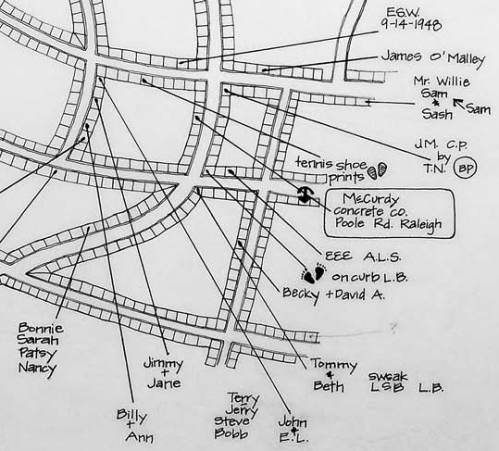 E.S.W.
9-14-1948
James O'Malley
Mr. Willie
Sam
+
Sash
Sam
J.M. C.P.
by
T.N. BP
tennis shoe
prints
McCurdy
concrete co.
Poole Rd. Raleigh
EEE A.L.S.
on curb L.B.
Becky + David A.
?
Bonnie
Sarah
Patsy
Nancy
Jimmy
+
Jane
Tommy
+
Beth
LSB L.B.
Billy
+
Ann
Terry
Jerry
Steve
Bobb
John
+
E.L.